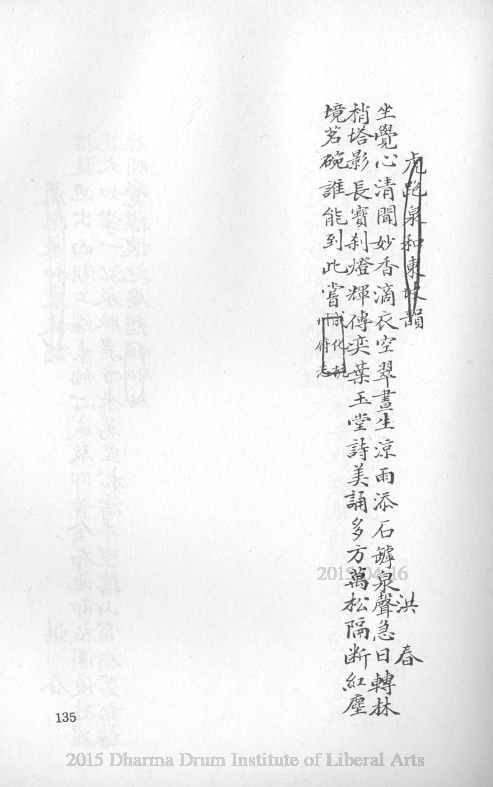 虎跑泉和東坡韻　洪春
坐覺心清聞妙香滴衣空翠晝生涼雨添石罅泉聲急日轉林
梢塔影長寶刹燈輝傳奕葉玉堂詩美誦多方萬松隔断紅塵
境茗碗誰能到此嘗
成化杭
州府志
135
2015 Dharma Drum Institute of Liberal Arts